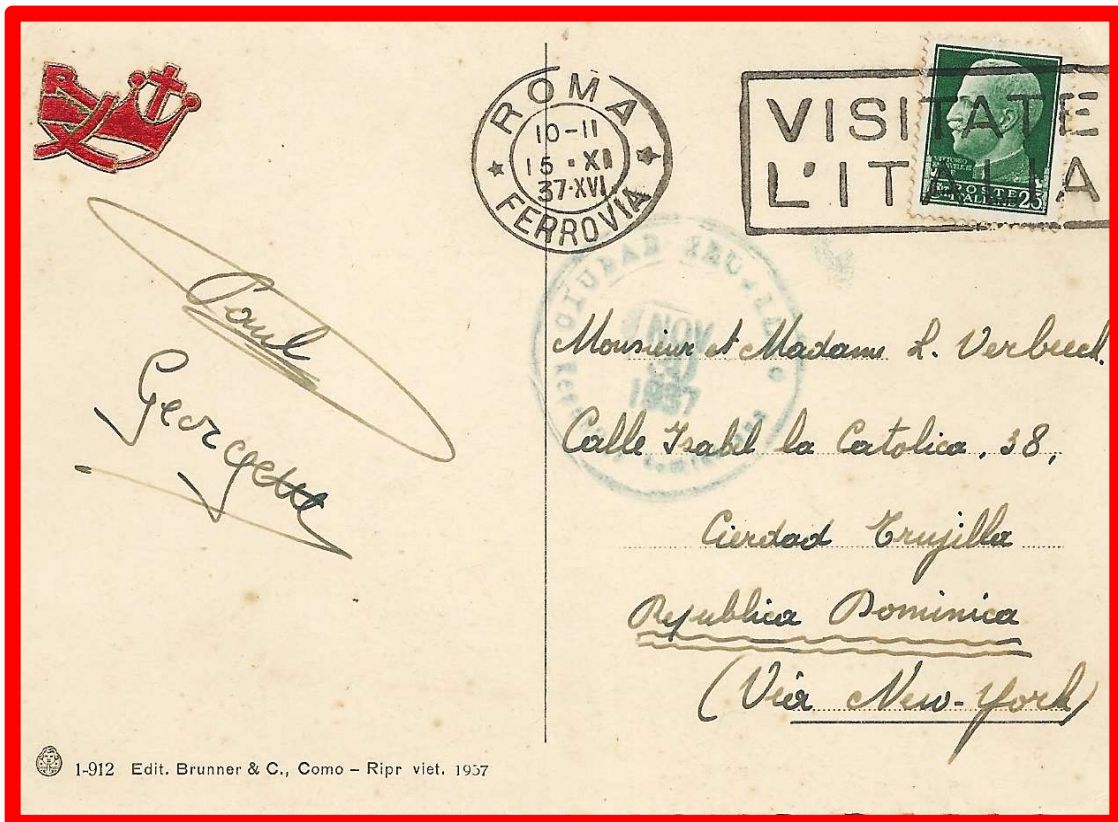 ROMA
10-11
15 · XI
37·XVI
FERROVIA
VISITATE
L'ITALIA
POSTE
ITALIANE 25
NOV
1937
Paul
Georgette
Monsieur et Madame L. Verbeeck
Calle Isabel la Catolica, 38,
Cierdad Trujilla
Republica Dominica
(Via New-York)
1-912 Edit. Brunner & C., Como – Ripr viet. 1937